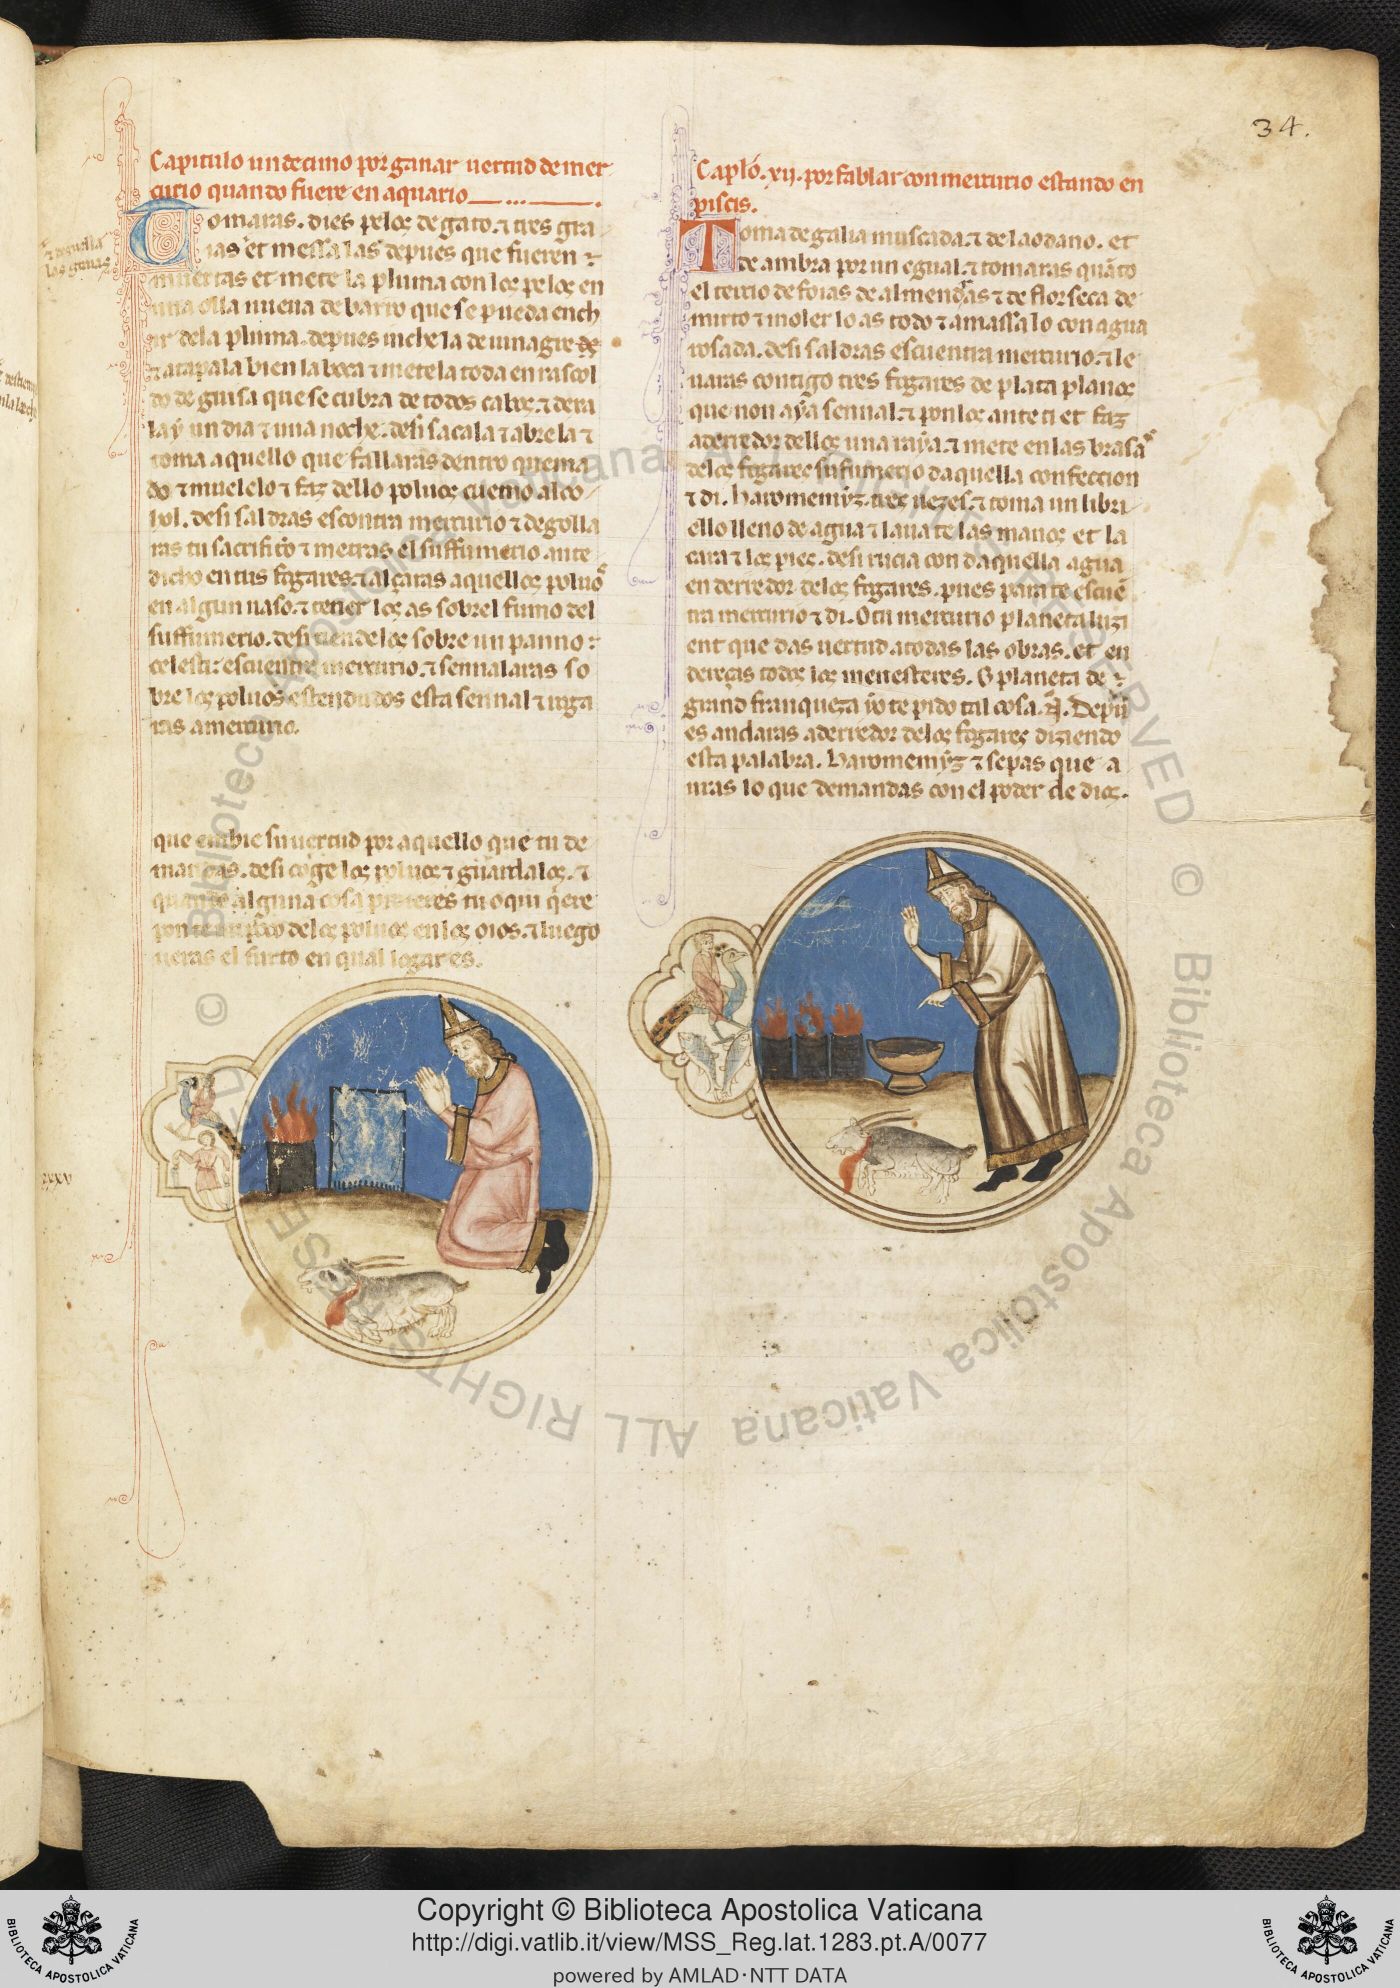 34.
Capitulo undecimo por ganar uertud de mer
curio quando fuere en aquario
Tomaras. dies pelos de gato. ⁊ tres gra
ias et messa las depues que fueren
muertas et mete la pluma con los pelos en
una olla nueua de barro que se pueda ench
ir dela pluma. depues inche la de uinagre de
⁊ atapala bien la boca ⁊ metela toda en rascol
do de guisa que se cubra de todos cabos. ⁊ dexa
la ẏ un dia ⁊ una noche. desi sacala ⁊ abrela ⁊
toma aquello que fallaras dentro quema
do ⁊ muelelo ⁊ faz dello poluos cuemo alco
hol. desi saldras escontra mercurio ⁊ degolla
ras tu sacrificio ⁊ metras el suffumerio ante
dicho en tus fogares. ⁊ alçaras aquellos poluos
en algun uaso. ⁊ tener los as sobrel fumo del
suffumerio. desi tiendelos sobre un panno
celesti: escuentra mercurio. ⁊ sennalaras so
bre los poluos estendudos esta sennal ⁊ roga
ras a mercurio.
que enbie su uertud por aquello que tu de
mandas. desi coge los poluos ⁊ guardalos. ⁊
quando alguna cosa perderes tu o qui q̃ere
pon te un poco delos poluos en los oios. ⁊ luego
ueras el furto en qual logar es.
⁊ deguella
las grnas
xxxv
Caplo. xij. por fablar con mercurio estando en
piscis.
Toma de galia muscada. ⁊ de laodano. et
de ambra por un egual. ⁊ tomaras quãto
el tercio de foias de almendras ⁊ de flor seca de
mirto ⁊ moler lo as todo ⁊ amassalo con agua
rosada. desi saldras escuentra mercurio. ⁊ le
uaras contigo tres fogares de plata planos
que non aẏa sennal. ⁊ ponlos ante ti et faz
aderredor dellos una raẏa. ⁊ mete en las brasas
delos fogares sufumerio daquella confeccion
⁊ di. haromemẏz. tres uezes. ⁊ toma un libri
ello lleno de agua ⁊ laua te las manos et la
cara ⁊ los pies. desi rucia con daquella agua
en derredor delos fogares. pues para te escuẽ
tra mercurio ⁊ di. O tu mercurio planeta luzi
ent que das uertud a todas las obras. et en
dereças todos los menesteres. O planeta de
grand franqueza ẏo te pido tal cosa. ⁊. Depu
es andaras aderredor delos fogares diziendo
esta palabra. haromemẏz ⁊ sepas que a
uras lo que demandas con el poder de dios.
© Biblioteca Apostolica Vaticana ALL RIGHTS RESERVED © Biblioteca Apostolica Vaticana ALL RIGHTS RESERVED
Copyright © Biblioteca Apostolica Vaticana
http://digi.vatlib.it/view/MSS_Reg.lat.1283.pt.A/0077
powered by AMLAD·NTT DATA
BIBLIOTECA APOSTOLICA VATICANA
BIBLIOTECA APOSTOLICA VATICANA